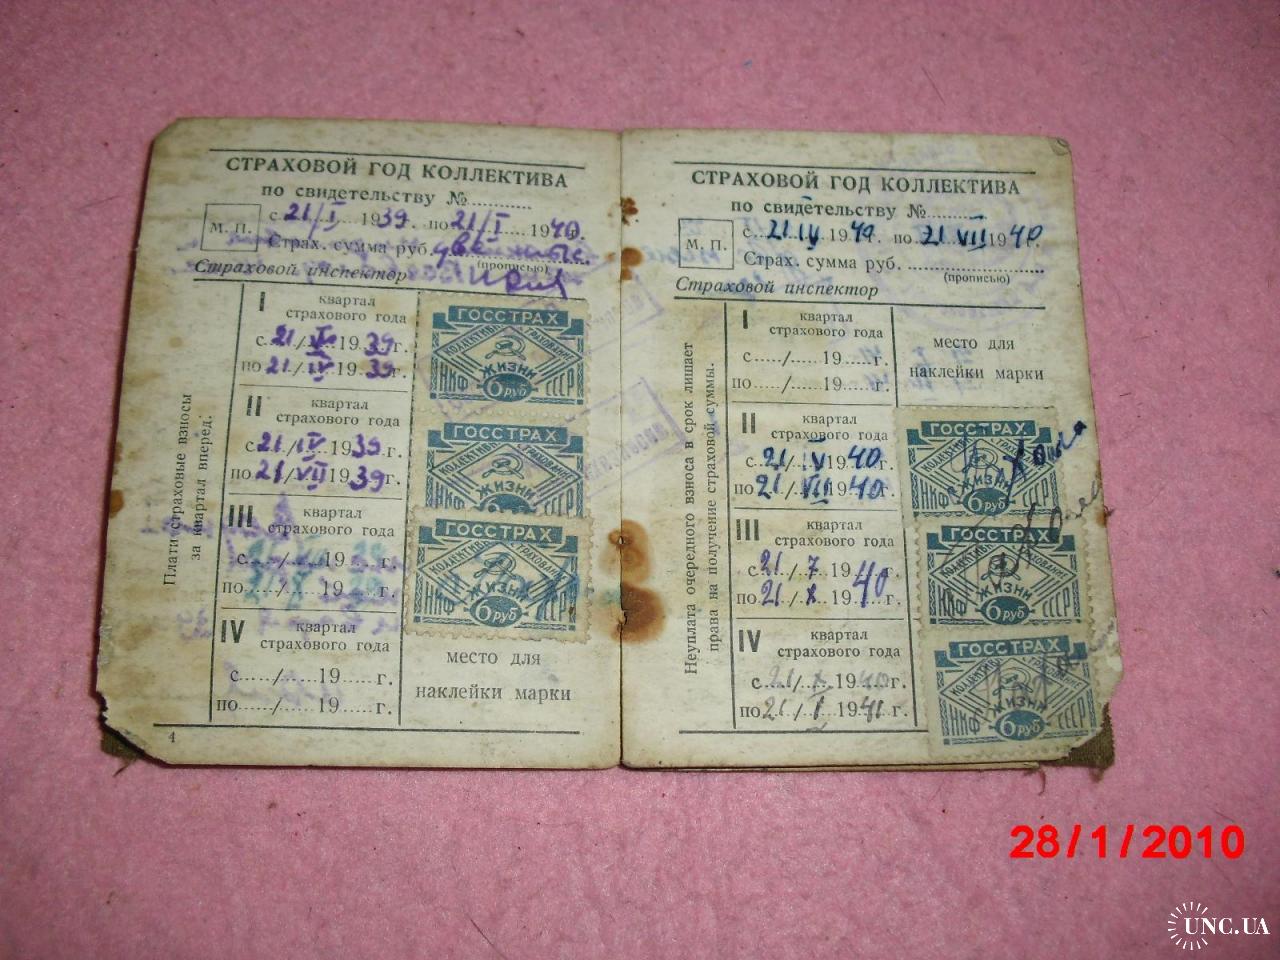 СТРАХОВОЙ ГОД КОЛЛЕКТИВА
по свидетельству №
М. П.
с 21/I 1939г. по 21/I 1940.
Страх. сумма руб.
(прописью)
Страховой инспектор
Плати страховые взносы
за квартал вперед.
I квартал
страхового года
с 21/ 1939г.
по 21/IV 1939г.
II квартал
страхового года
с 21/IV 1939г.
по 21/VII 1939г.
III квартал
страхового года
с / 19 г.
по / 19 г.
IV квартал
страхового года
с / 19 г.
по / 19 г.
ГОССТРАХ
КОЛЛЕКТИВНОЕ СТРАХОВАНИЕ
ЖИЗНИ
НКФ 6 руб СССР
ГОССТРАХ
КОЛЛЕКТИВНОЕ СТРАХОВАНИЕ
ЖИЗНИ
НКФ 6 руб СССР
ГОССТРАХ
КОЛЛЕКТИВНОЕ СТРАХОВАНИЕ
ЖИЗНИ
НКФ 6 руб СССР
место для
наклейки марки
4
СТРАХОВОЙ ГОД КОЛЛЕКТИВА
по свидетельству №
М. П.
с 21 IV 1949. по 21 VII 1940
Страх. сумма руб.
(прописью)
Страховой инспектор
Неуплата очередного взноса в срок лишает
права на получение страховой суммы.
I квартал
страхового года
с / 19 г.
по / 19 г.
место для
наклейки марки
II квартал
страхового года
с 21/IV 1940г.
по 21/VII 1940г.
III квартал
страхового года
с 21/7 1940г.
по 21/X 19 г.
IV квартал
страхового года
с 21/X 1940г.
по 21/I 1941г.
ГОССТРАХ
КОЛЛЕКТИВНОЕ СТРАХОВАНИЕ
ЖИЗНИ
НКФ 6 руб СССР
ГОССТРАХ
КОЛЛЕКТИВНОЕ СТРАХОВАНИЕ
ЖИЗНИ
НКФ 6 руб СССР
ГОССТРАХ
КОЛЛЕКТИВНОЕ СТРАХОВАНИЕ
ЖИЗНИ
НКФ 6 руб СССР
28/1/2010
UNC.UA